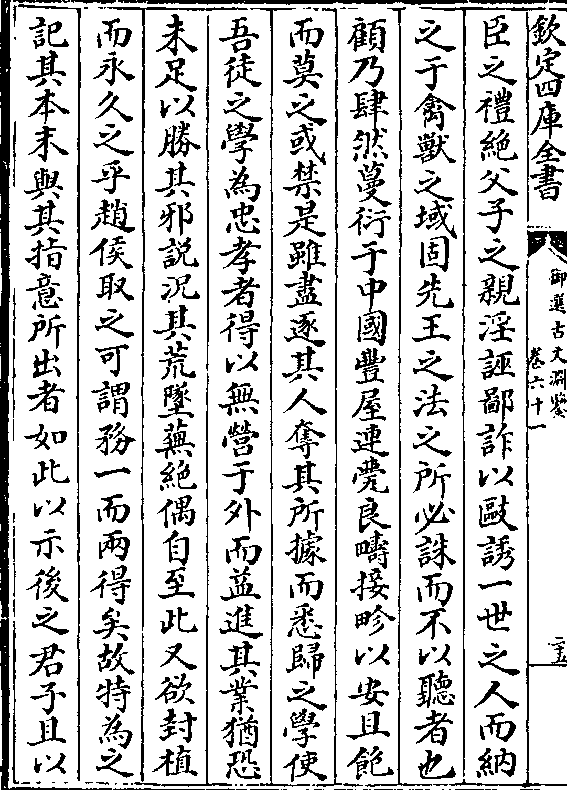 欽定四庫全書
御選古文淵鑒
卷六十一
二五
臣之禮絶父子之親淫誣鄙詐以敺誘一世之人而納
之于禽獸之域固先王之法之所必誅而不以聽者也
顧乃肆然蔓衍于中國豐屋連甍良疇接畛以安且飽
而莫之或禁是雖盡逐其人奪其所據而悉歸之學使
吾徒之學為忠孝者得以無營于外而益進其業猶恐
未足以勝其邪説況其荒墜蕪絶偶自至此又欲封植
而永久之乎趙侯取之可謂務一而兩得矣故特為之
記其本末與其指意所出者如此以示後之君子且以